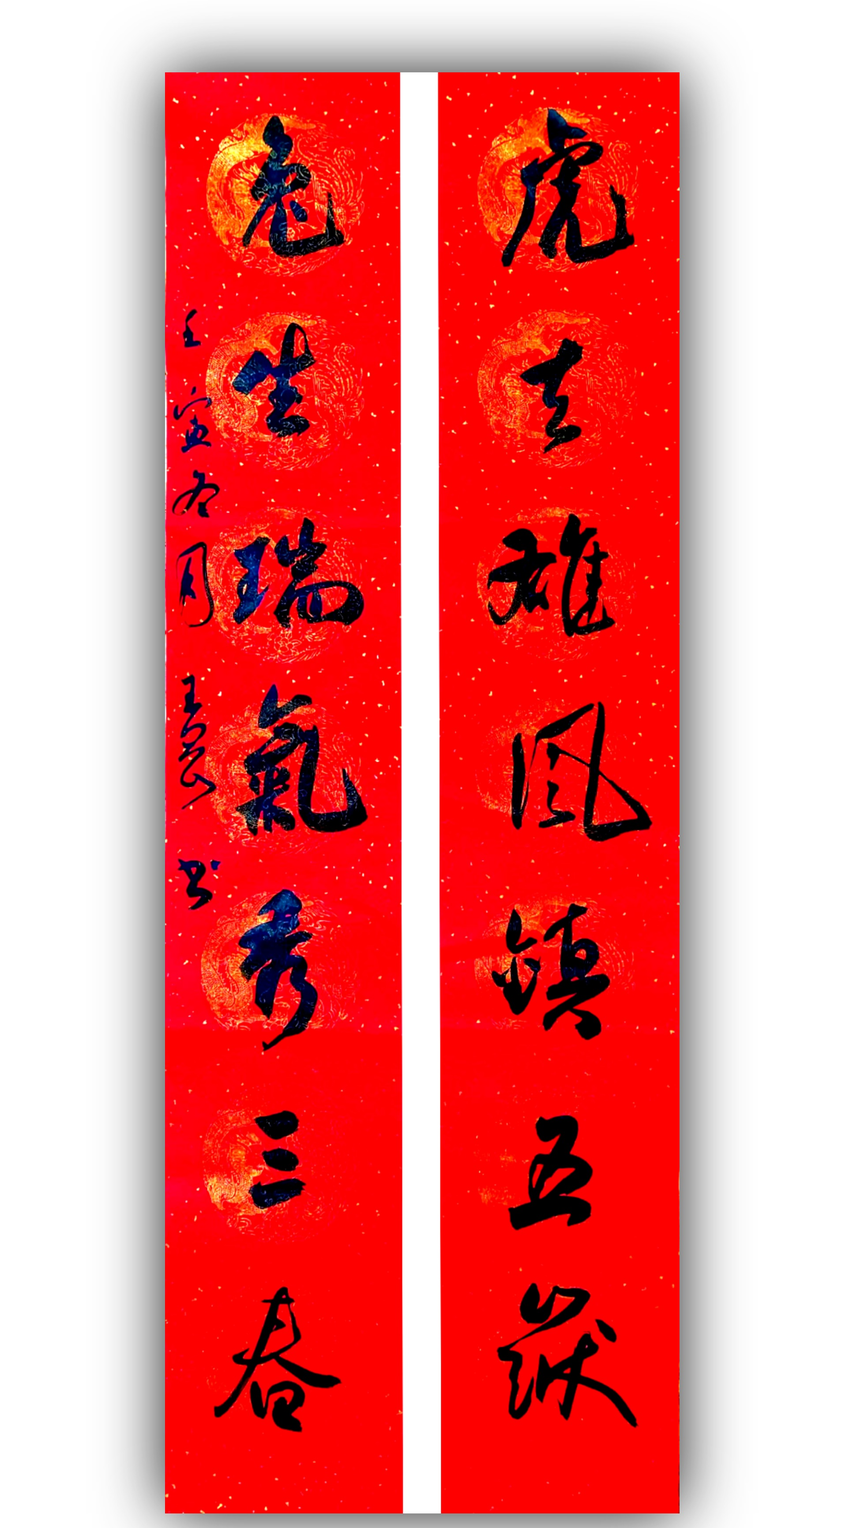 虎去雄風鎮五嶽
兔生瑞氣秀三春
壬寅冬月 王 书